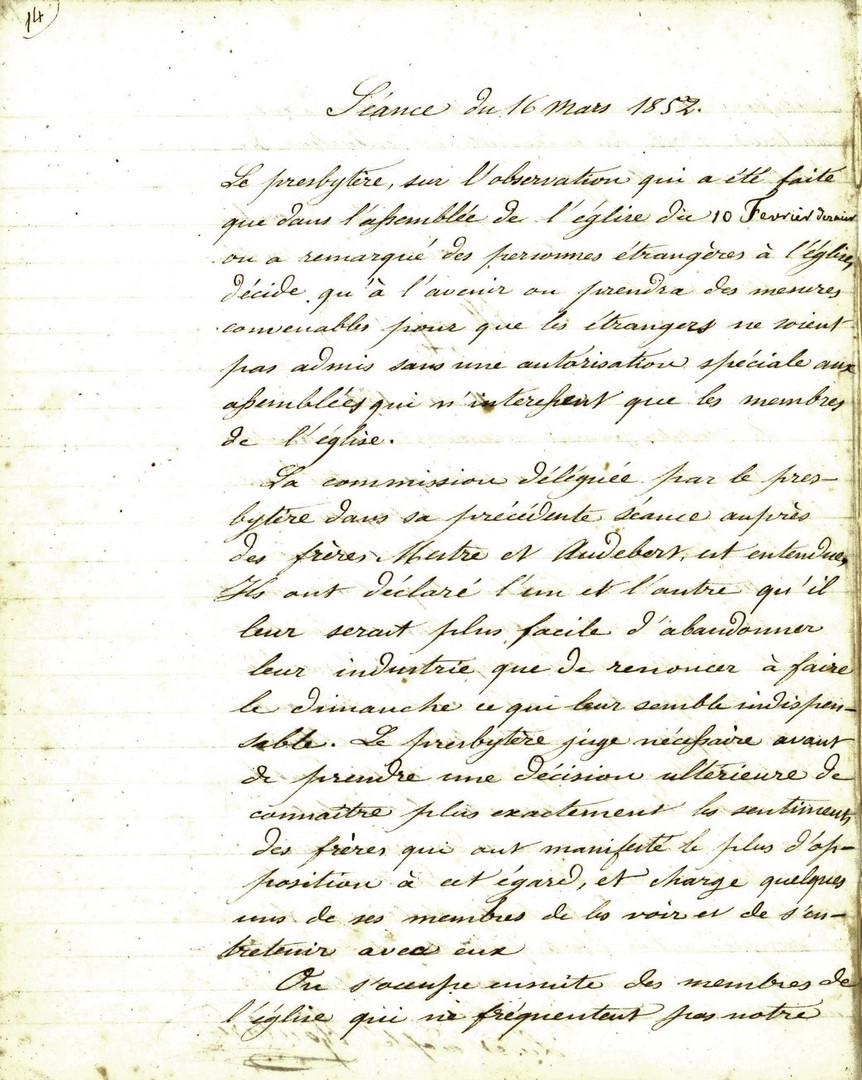 14
Séance du 16 Mars 1852.
Le presbytère, sur l'observation qui a été faite
que dans l'assemblée de l'église du 10 Fevrier dernier
on a remarqué des personnes étrangères à l'église,
décide qu'à l'avenir on prendra des mesures
convenables pour que les étrangers ne soient
pas admis sans une autorisation spéciale aux
assemblées qui n'interessent que les membres
de l'église.
La commission déléguée par le pres-
bytère dans sa précédente séance auprès
des frères Mestre et Audebert, est entendue,
Ils ont déclaré l'un et l'autre qu'il
leur serait plus facile d'abandonner
leur industrie que de renoncer à faire
le dimanche ce qui leur semble indispen-
sable. Le presbytère juge nécessaire avant
de prendre une décision ultérieure de
connaître plus exactement les sentiments
des frères qui ont manifesté le plus d'op-
position à cet égard, et charge quelques
uns de ses membres de les voir et de s'en-
tretenir avec eux
On s'occupe ensuite des membres de
l'église qui ne fréquentent pas notre